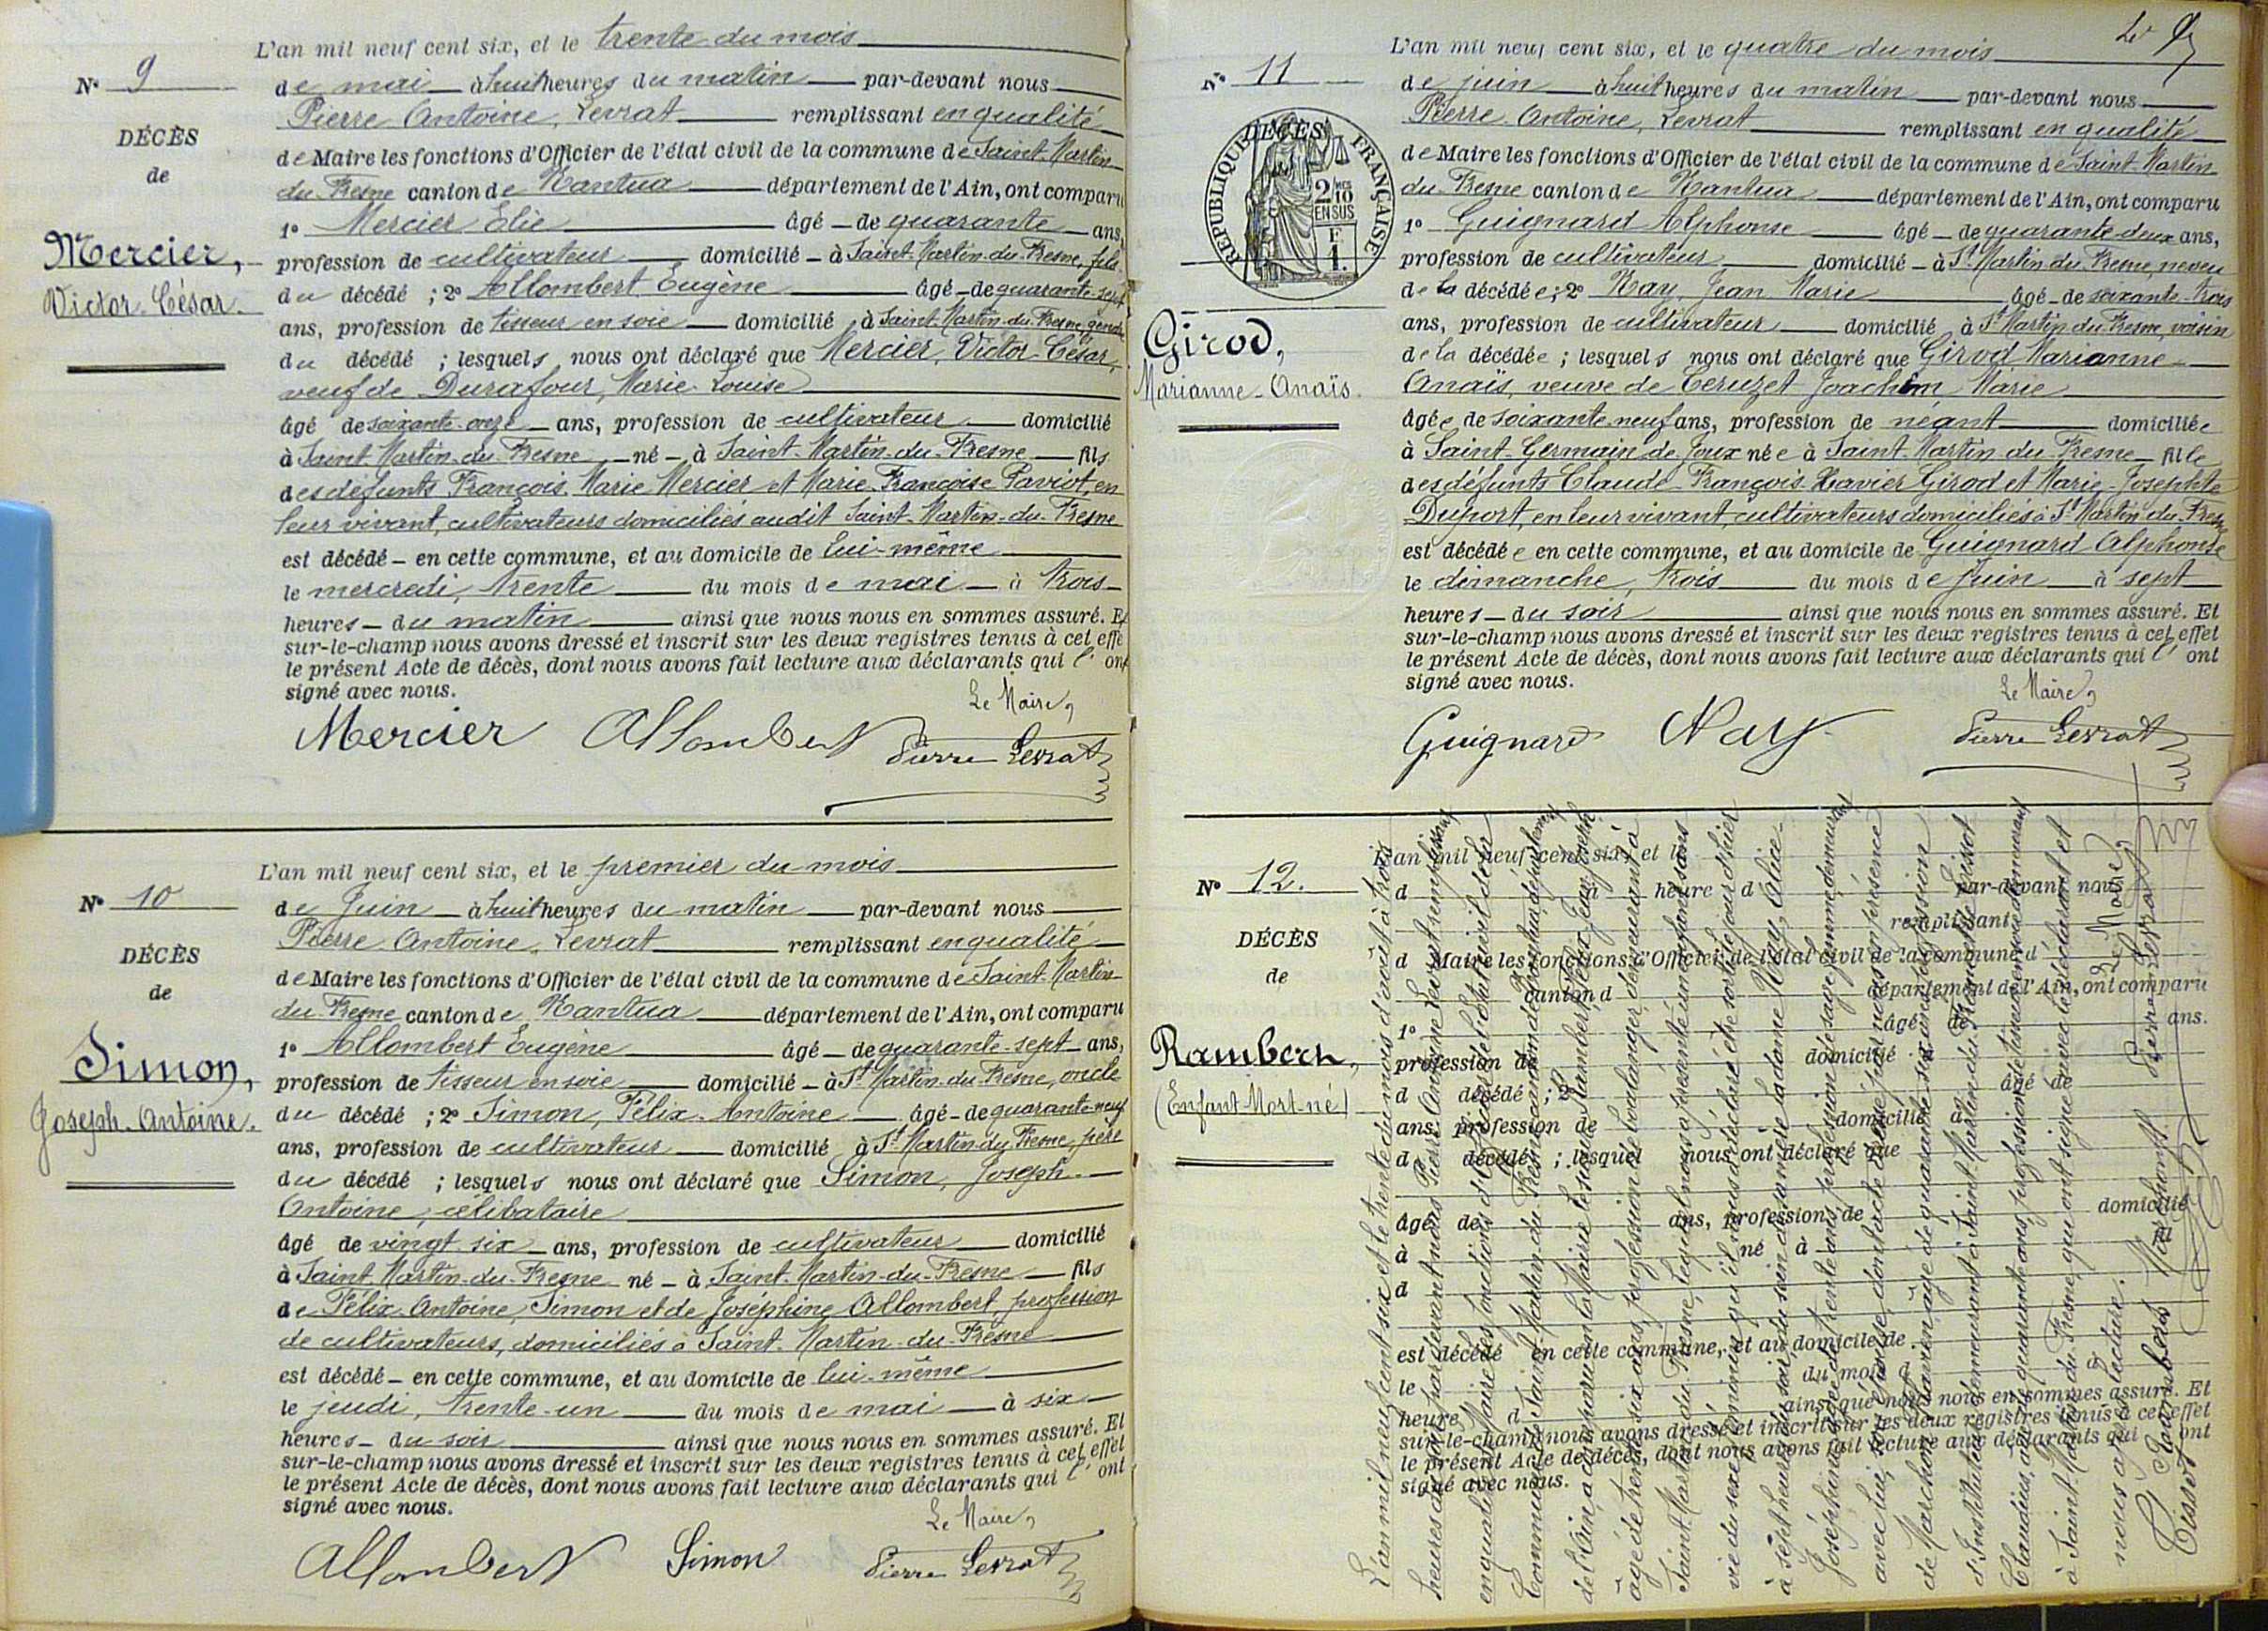 L'an mil neuf cent six, et le trente du mois
N° 9
de mai à huit heures du matin par-devant nous
Pierre Antoine, Levrat remplissant en qualité
DÉCÈS
de Maire les fonctions d'Officier de l'état civil de la commune de Saint-Martin
de
du-Fresne canton de Nantua département de l'Ain, ont comparu
1° Mercier Elie âgé de quarante ans,
Mercier,
profession de cultivateur domicilié à Saint-Martin-du-Fresne, fils
Victor-César.
du décédé ; 2° Allombert Eugène âgé de quarante-sept
ans, profession de tisseur en soie domicilié à Saint-Martin-du-Fresne, gendre
du décédé ; lesquels nous ont déclaré que Mercier, Victor-César,
veuf de Durafour, Marie-Louise
âgé de soixante-onze ans, profession de cultivateur domicilié
à Saint-Martin-du-Fresne né à Saint-Martin-du-Fresne fils
des défunts François-Marie Mercier et Marie-Françoise Paviot, en
leur vivant, cultivateurs domiciliés audit Saint-Martin-du-Fresne
est décédé en cette commune, et au domicile de lui-même
le mercredi, trente du mois de mai à trois
heures du matin ainsi que nous nous en sommes assuré. Et
sur-le-champ nous avons dressé et inscrit sur les deux registres tenus à cet effe
le présent Acte de décès, dont nous avons fait lecture aux déclarants qui l'ont
signé avec nous.
Le Maire,
Mercier Allombert Pierre Levrat
L'an mil neuf cent six, et le premier du mois
N° 10
de Juin à huit heures du matin par-devant nous
Pierre Antoine, Levrat remplissant en qualité
DÉCÈS
de Maire les fonctions d'Officier de l'état civil de la commune de Saint-Martin
de
du-Fresne canton de Nantua département de l'Ain, ont comparu
1° Allombert Eugène âgé de quarante-sept ans,
Simon,
profession de tisseur en soie domicilié à St Martin-du-Fresne, oncle
Joseph-Antoine.
du décédé ; 2° Simon, Félix-Antoine âgé de quarante-neuf
ans, profession de cultivateur domicilié à St Martin-du-Fresne, père
du décédé ; lesquels nous ont déclaré que Simon, Joseph-
Antoine, célibataire
âgé de vingt-six ans, profession de cultivateur domicilié
à Saint-Martin-du-Fresne né à Saint-Martin-du-Fresne fils
de Félix-Antoine, Simon et de Joséphine Allombert, profession
de cultivateurs, domiciliés à Saint-Martin-du-Fresne
est décédé en cette commune, et au domicile de lui-même
le jeudi, trente-un du mois de mai à six
heures du soir ainsi que nous nous en sommes assuré. Et
sur-le-champ nous avons dressé et inscrit sur les deux registres tenus à cet effet
le présent Acte de décès, dont nous avons fait lecture aux déclarants qui l'ont
signé avec nous.
Le Maire,
Allombert Simon Pierre Levrat
L'an mil neuf cent six, et le quatre du mois
N° 11
de juin à huit heures du matin par-devant nous
Pierre Antoine, Levrat remplissant en qualité
DÉCÈS
RÉPUBLIQUE FRANÇAISE
2/10 EN SUS
F 1.
de Maire les fonctions d'Officier de l'état civil de la commune de Saint-Martin
du-Fresne canton de Nantua département de l'Ain, ont comparu
1° Guignard Alphonse âgé de quarante-deux ans,
profession de cultivateur domicilié à St Martin-du-Fresne, neveu
de la décédée ; 2° Nay, Jean Marie âgé de soixante-trois
Girod,
Marianne-Anaïs.
ans, profession de cultivateur domicilié à St Martin-du-Fresne, voisin
de la décédée ; lesquels nous ont déclaré que Girod Marianne
Anaïs, veuve de Ceruzet Joachim Marie
âgée de soixante-neuf ans, profession de néant domiciliée
à Saint-Germain-de-Joux née à Saint-Martin-du-Fresne fille
des défunts Claude-François-Xavier Girod et Marie-Josephte
Duport, en leur vivant, cultivateurs domiciliés à St Martin-du-Fresne
est décédée en cette commune, et au domicile de Guignard Alphonse
le dimanche, trois du mois de Juin à sept
heures du soir ainsi que nous nous en sommes assuré. Et
sur-le-champ nous avons dressé et inscrit sur les deux registres tenus à cet effet
le présent Acte de décès, dont nous avons fait lecture aux déclarants qui l'ont
signé avec nous.
Le Maire,
Guignard Nay Pierre Levrat
N° 12.
DÉCÈS
de
Rambert,
(Enfant-Mort-né)
L'an mil neuf cent six, et le
d à heure d par-devant nous
remplissant
d Maire les fonctions d'Officier de l'état civil de la commune d
canton d département de l'Ain, ont comparu
1° âgé de ans.
profession de domicilié à
d décédé ; 2° âgé de
ans, profession de domicilié à
d décédé ; lesquel nous ont déclaré que
âgé de ans, profession de domicilié
à né à fil
d
est décédé en cette commune, et au domicile de
le du mois d à
heure d ainsi que nous nous en sommes assuré. Et
sur-le-champ nous avons dressé et inscrit sur les deux registres tenus à cet effet
le présent Acte de décès, dont nous avons fait lecture aux déclarants qui ont
signé avec nous.
L'an mil neuf cent six et le trente du mois d'août à trois
heures du soir, par devant nous Pierre Antoine Levrat remplissant
en qualité de Maire les fonctions d'Officier de l'état civil de la
Commune de Saint-Martin-du-Fresne canton de Nantua département
de l'Ain, a comparu en la Mairie le sieur Rambert, Jean
âgé de trente-six ans, profession de boulanger, demeurant à
Saint-Martin-du-Fresne, lequel nous a présenté un enfant sans
vie du sexe qu'il nous a déclaré être sorti le jour d'hier
à sept heures du soir, du sein de sa mère la dame Nay, Alice
Joséphine, âgée de trente ans, profession de sage-femme, demeurant
avec lui, son épouse, dont acte a été fait en présence
de Marchon, âgé de quarante-six ans, profession
d'Instituteur, demeurant à Saint-Martin-du-Fresne, et de Tissot
Claudius, âgé de quarante ans, profession de demeurant
à Saint-Martin-du-Fresne, qui ont signé avec le déclarant et
nous après lecture. Le Maire,
J. Rambert Marchon Pierre Levrat
Tissot